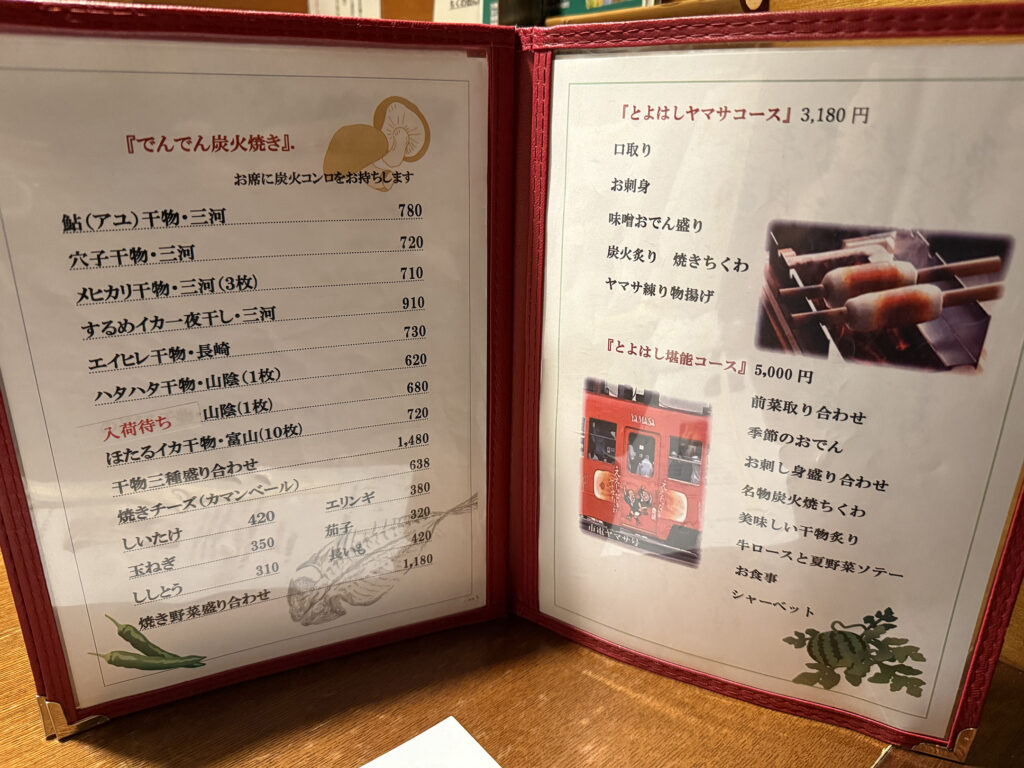 『でんでん炭火焼き』.
お席に炭火コンロをお持ちします
鮎(アユ)干物・三河 780
穴子干物・三河 720
メヒカリ干物・三河(3枚) 710
するめイカ一夜干し・三河 910
エイヒレ干物・長崎 730
ハタハタ干物・山陰(1枚) 620
入荷待ち 山陰(1枚) 680
ほたるイカ干物・富山(10枚) 720
干物三種盛り合わせ 1,480
焼きチーズ(カマンベール) 638
しいたけ 420 エリンギ 380
玉ねぎ 350 茄子 320
ししとう 310 長いも 420
焼き野菜盛り合わせ 1,180
『とよはしヤマサコース』 3,180 円
口取り
お刺身
味噌おでん盛り
炭火炙り 焼きちくわ
ヤマサ練り物揚げ
『とよはし堪能コース』 5,000 円
前菜取り合わせ
季節のおでん
お刺し身盛り合わせ
名物炭火焼ちくわ
美味しい干物炙り
牛ロースと夏野菜ソテー
お食事
シャーベット
市電ヤマサ号